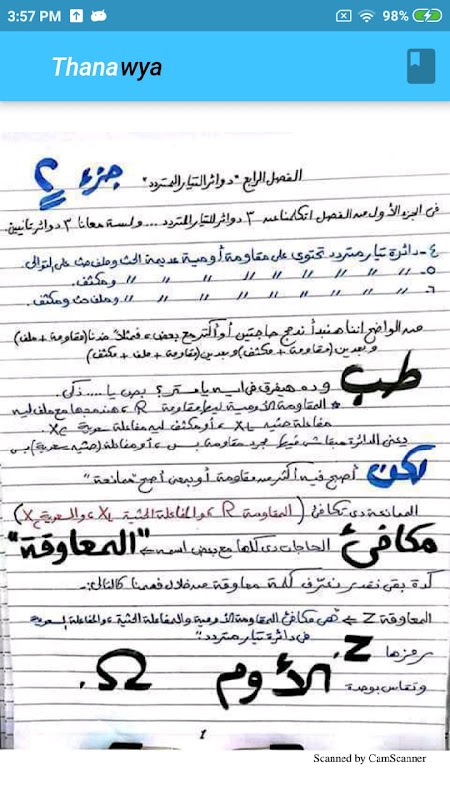 3:57 PM
98%
Thanawya
الفصل الرابع "دوائر التيار المتردد" جزء ٢
فى الجزء الأول من الفصل اتكلمنا عن ٣ دوائر للتيار المتردد .... ولسة معانا ٣ دوائر تانيين.
٤- دائرة تيار متردد تحتوى على مقاومة أومية عديمة الحث وملف حث على التوالى.
٥- " " " " " " " " " ومكثف.
٦- " " " " " " " " " وملف حث ومكثف.
من الواضح اننا هنبدأ ندمج حاجتين أو أكتر مع بعض، فمثلاً خدنا (مقاومة + ملف)
وبعدين (مقاومة + مكثف) وبعدين (مقاومة + ملف + مكثف)
طب وده هيفرق فى ايه يا مستر؟ بص يا..... ذكى.
* المقاومة الأومية ليها مقاومة R، هندمجها مع ملف ليه
مفاعلة حثية XL، أو مكثف ليه مفاعلة سعوية XC.
يعنى الدائرة مبقاش فيها مجرد مقاومة بس، أو مفاعلة (حثية، سعوية) بس
لكن أصبح فيه أكثر من مقاومة أو بمعنى أصح "ممانعة"
الممانعة دى تكافئ (المقاومة R، والمفاعلة الحثية XL، والسعوية XC)
مكافئ الحاجات دى كلها مع بعض اسمه ← "المعاوقة"
كدة بقى نقدر نعرف كلمة معاوقة من خلال فهمنا كالتالى:-
المعاوقة Z ← "هى مكافئ المقاومة الأومية والمفاعلة الحثية، والمفاعلة السعوية
فى دائرة تيار متردد"
رمزها Z.
وتقاس بوحدة الأوم Ω.
1
Scanned by CamScanner